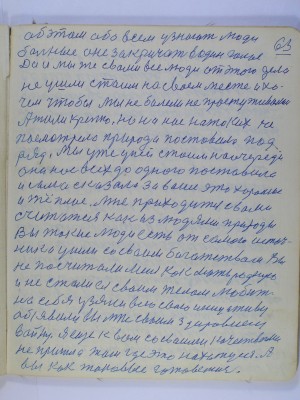 63
об этом обо всем узнают люди
больные они закричат в один голос
Да и мы же с вами все люди от этого дела
не ушли стоим на своем месте и хо-
чем чтобы мы не болели не простуживали
А жили крепко, но на нас на таких не
посмотрела природа поставила под
ряд. Мы уже у ней стоим на очереди
она нас всех до одного поставила
и сама сказала за ваше это хорошее
и тёплое. Мне приходится с вами
считаться как из людями природы
Вы такие люди есть от самого источ-
ника ушли со своим богатством Вы
не посчитали меня как
и не стали с своим телом любить
на себя взяли всю свою инициативу
объявили вы же своим здоровьем
войну. Я еще к вам со своими качествами
не пришло там где это находится. А
вы как таковые готовились.